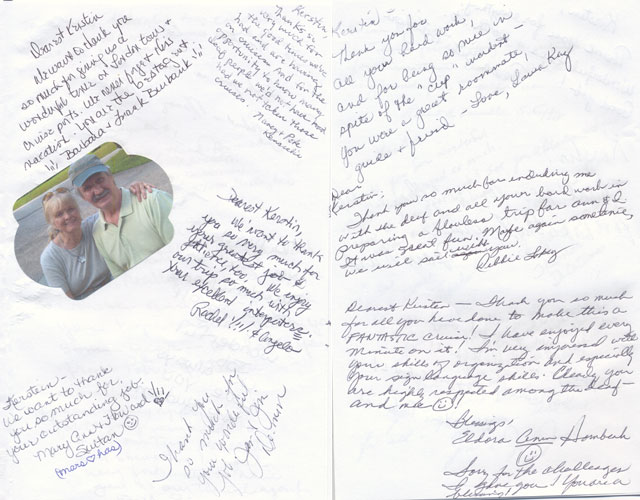 Dearest Kersten
We want to thank you
so much for giving us a
wonderful time on London tours &
cruise ports. We never forget this
vacation. You are the greatest gal
!!! Barbara & Frank Burbank !!!
Kersten,
Thanks so
very much for
the good times
had and for the
opportunity to know many
of people we'd
had we not taken these
cruises.
Nancy &
Dearest Kerstin,
We want to thank
you so very much for
your greatest job &
athletic, too. We enjoy
our trip so much with
your excellent interpreters.
Rachel !!! & Angelo
Kerstein -
We want to thank
you so much for
your outstanding job.
Mary Ann & Howard !!!
Sultan
(more has)
Thank you
so much for
your wonderful
job
Kersten -
Thank you for
all your hard work,
and for being so nice in -
spite of the "cup" incident -
You were a great roommate,
guide & friend - Love, Laura Ray
Dear
Kerstin:
Thank you so much for enduring me
with the deaf and all your hard work in
preparing a flawless trip for us
It was great fun. Maybe again sometime
we will sail with you.
Debbie
Dearest Kersten - Thank you so much
for all you have done to make this a
FANTASTIC cruise! I have enjoyed every
minute on it! I'm very impressed with
your skills of organization and especially
your sign language skills. Clearly you
are highly respected among the deaf -
and me!
Blessings,
Eldora Ann
Sorry for the challenges
I gave you! You're a
blessing!